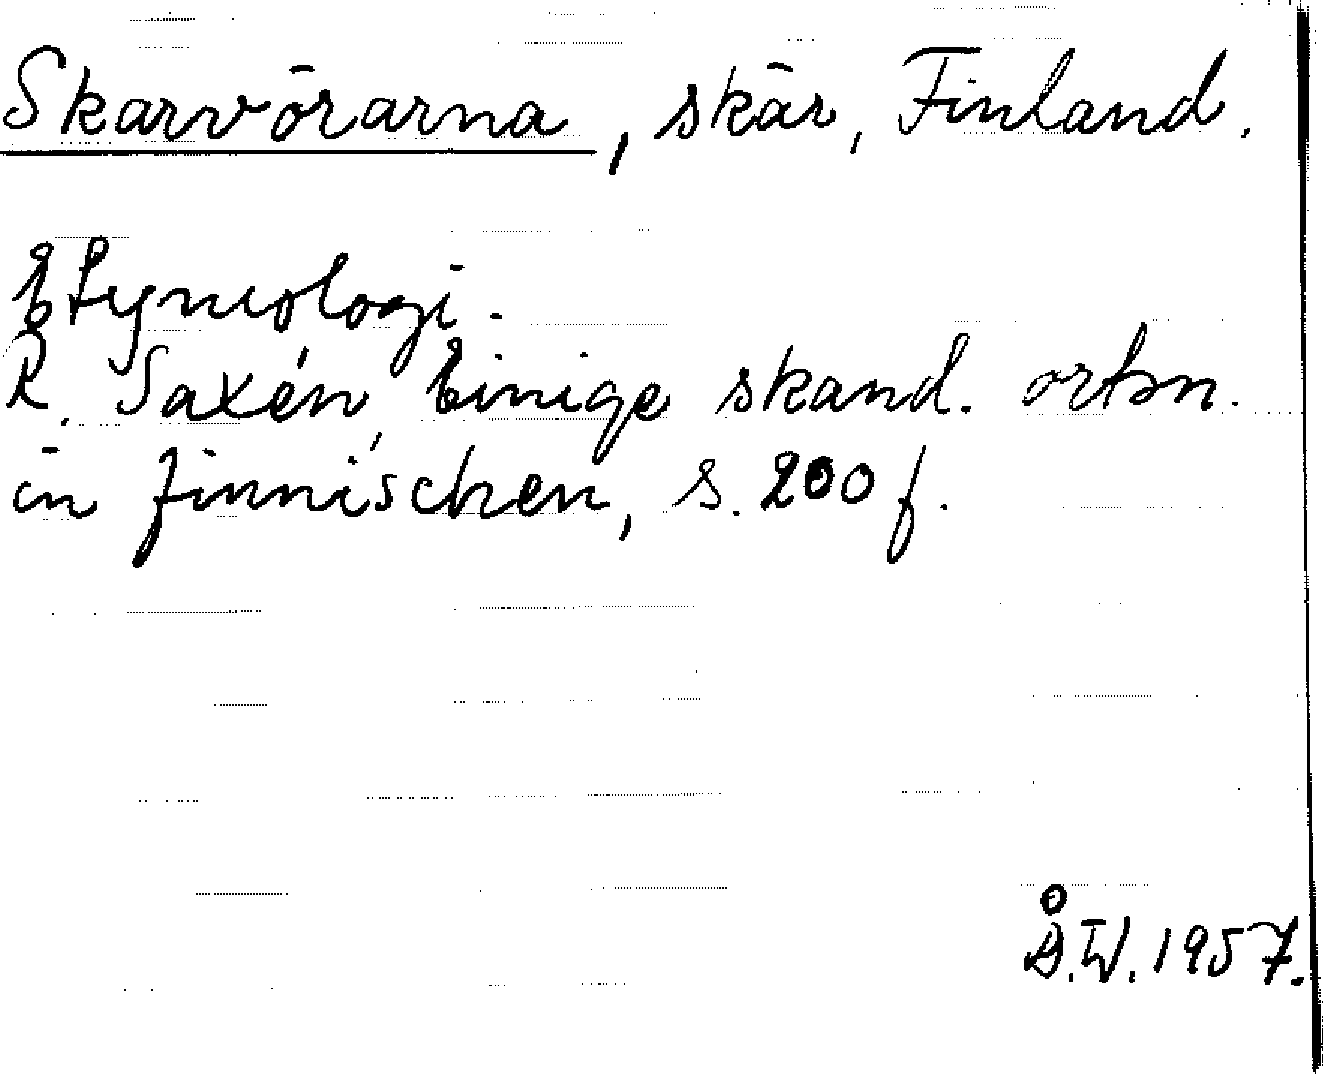 Skarvörarna, skär, Finland.
Etymologi.
R. Saxén, Einige skand. ortsn.
in finnischen, s. 200 f.
Å.W. 1957.